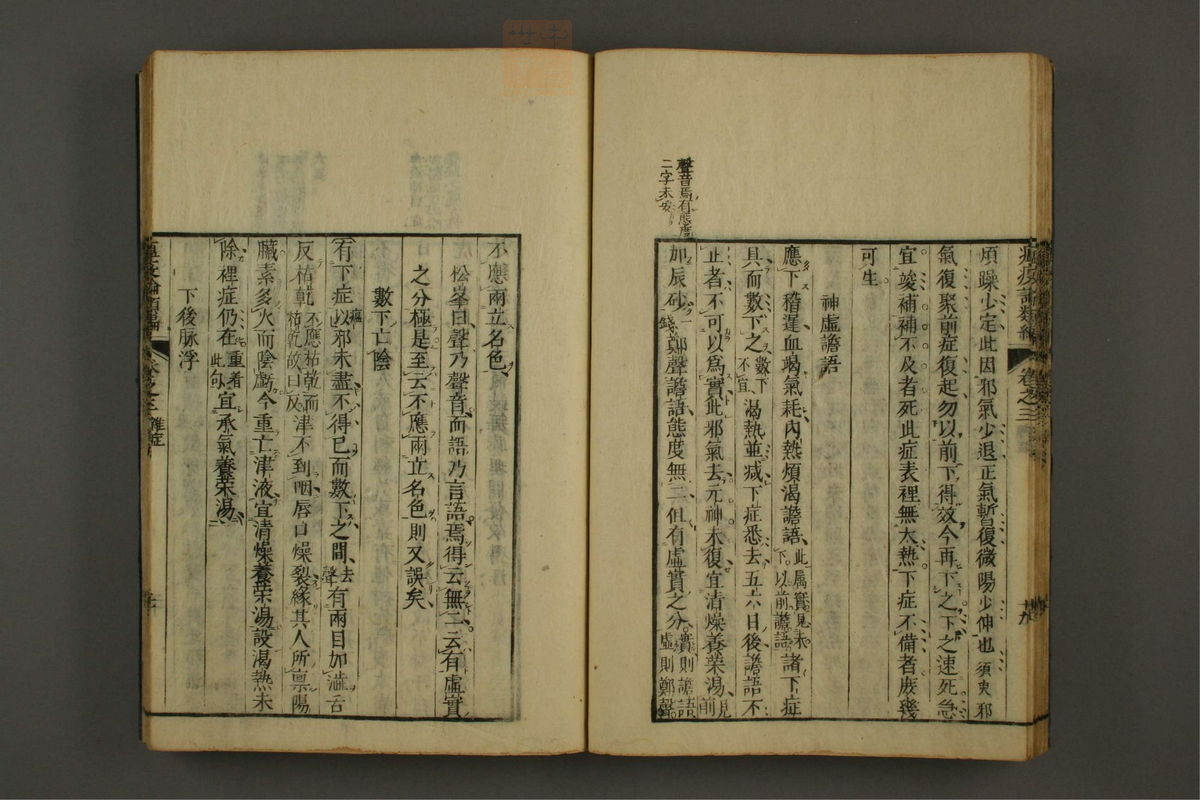 瘟疫論類編 卷之三 十九
煩躁少定此因邪氣少退正氣暫復微陽少伸也須臾邪
氣復聚前症復起勿以前下得效今再下之下之速死急
宜峻補補不及者死此症表裡無大熱下症不備者庶幾
可生
神虛譫語
應下稽遲血竭氣耗內熱煩渴譫語此屬實見未下以前譫語諸下症
具而數下之數下不宜渴熱並減下症悉去五六日後譫語不
止者不可以為實此邪氣去元神未復宜清燥養榮湯見前
加辰砂一錢鄭聲譫語態度無二但有虛實之分實則譫語虛則鄭聲
聲音焉有態度
二字未妥
不應兩立名色
松峯曰聲乃聲音而語乃言語焉得云無二云有虛實
之分極是至云不應兩立名色則又誤矣
數下亡陰
有下症以瘟邪未盡不得已而數下之間去聲有兩目加澁舌
反枯乾不應枯乾而枯乾故曰反津不到咽唇口燥裂緣其人所禀陽
臟素多火而陰虧今重亡津液宜清燥養榮湯設渴熱未
除裡症仍在重看此句宜承氣養榮湯
下後脉浮
卷之三 雜症